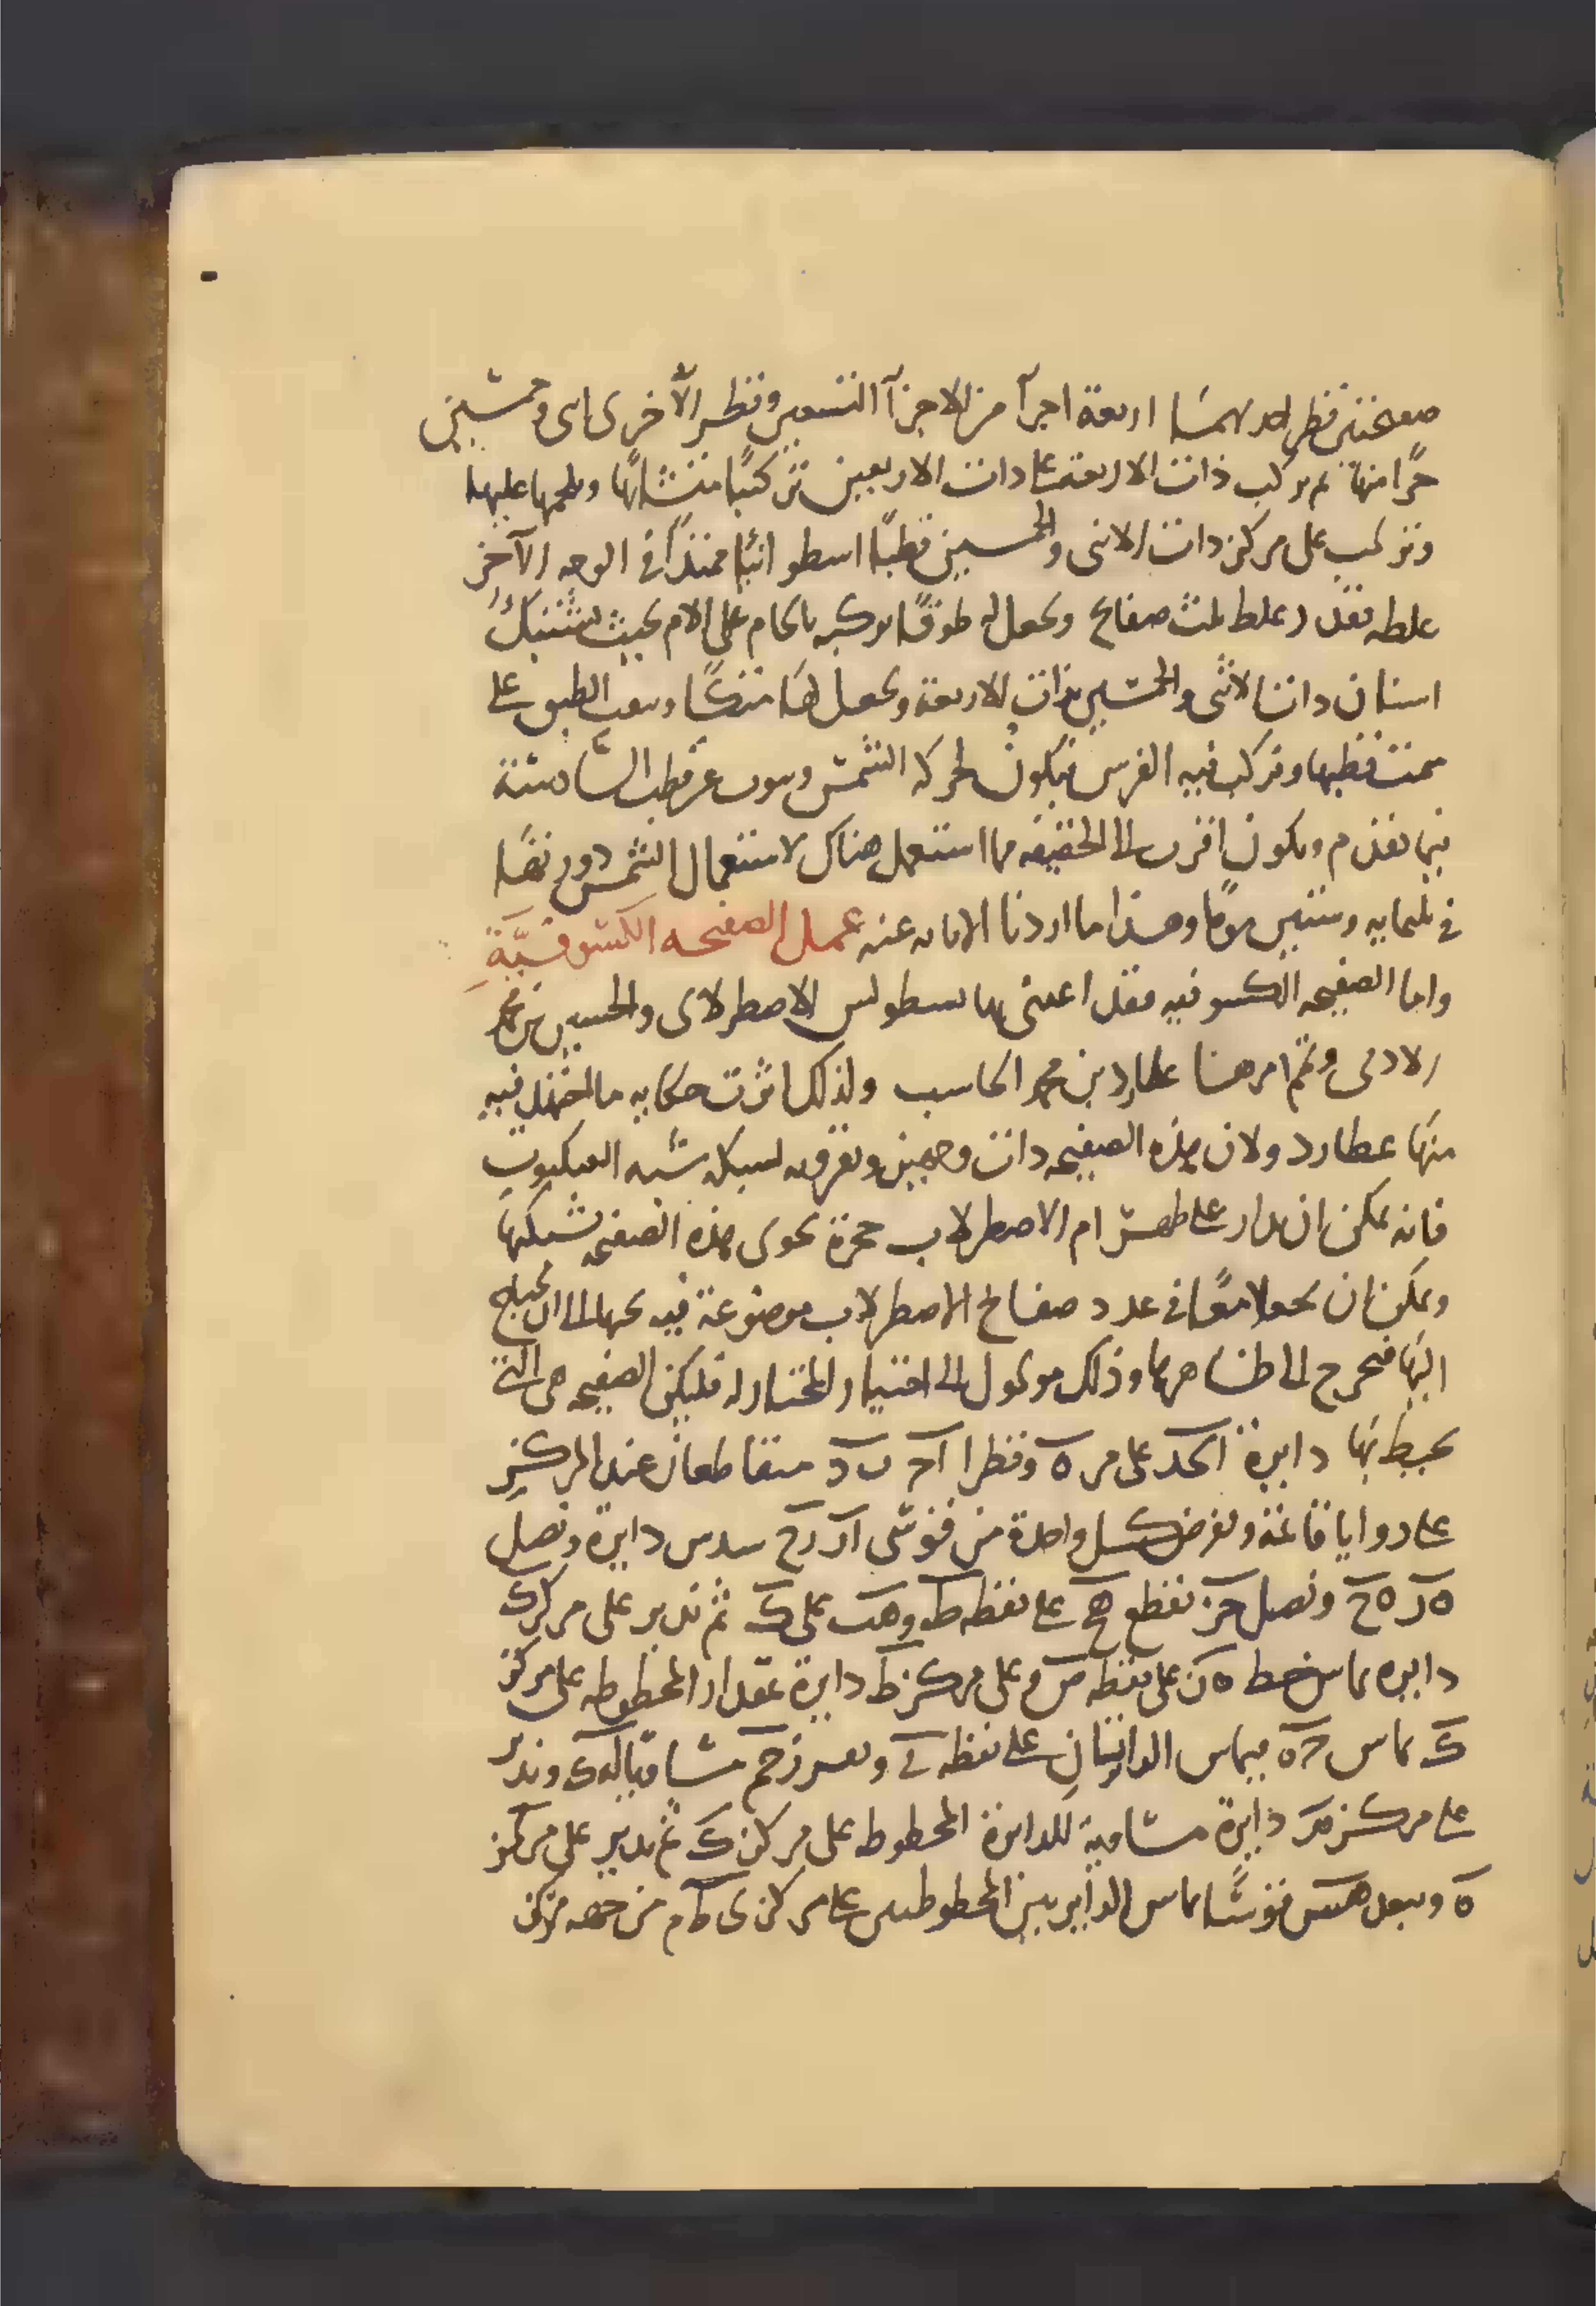 صفيحتين قطر احديهما اربعة اجزآ من الاجزآ التسعين وقطر الآخرى اثنى وخمسين
جزًا منها ثم نركب ذات الاربعة على ذات الاربعين تركيبًا متشابهًا ونلحمها عليها
ونركب على مركز ذات الاثنى والخمسين قطبًا اسطوانيًا ممتدًا في الوجه الآخر
غلظه بقدر غلظ ثلث صفائح ونجعل له طوقًا نركبه بالحام على الام بحيث تشتبك
اسنان ذات الاثنى والخمسين بذات الاربعة ونجعل لها متكًا ونثقب الطبق على
سمت قطبها ونركب فيه الفرس فيكون لحركة الشمس وينوب عن قطب السادسة
فيما تقدم ويكون اقرب الى الحقيقه مما استعمل هناك لاستعمال الشمس دورتها
في ثلثمايه وستين يومًا وهذا ما اردنا الابانه عنه عمل الصفيحه الكسوفيَّةِ
واما الصفيحه الكسوفيه فقد اعتنى بها بسطولس الاصطرلابى والحسين بن محمد
الادمى وتمم امرها عطارد بن محمد الحاسب ولذلك اثرت حكايه ما اختزل فيه
منها عطارد ولان هذه الصفيحه ذات وجهين وتعرفه لشبكه شبه العنكبوت
فانه يمكن ان يدار على ظهر ام الاصطرلاب حجرة تحوى هذه الصفيحه بشبكتها
ويمكن ان يجعلا معًا في عدد صفائح الاصطرلاب موضوعة فيه تحتها الى ان يحتاج
اليها فتخرج الى ظاهرها وذلك موكول الى اختيار المختار له فليكن الصفيحه هى التى
يحيط بها دايرة ابجد على مركز ه وقطرا اج ب د متقاطعان عند المركز
على زوايا قائمة ونفرض كل واحدة من قوسى از زح سدس دايرة ونصل
ه ز ه ح ونصل جز نقطع هح على نقطه ط وهب على ك ثم ندير على مركز ك
دايره تماس خط ه ن على نقطه ص وعلى مركز ط دايرة بمقدار المخطوطه على مركز
ك تماس حه فيماس الدايتان على نقطه ى ونفرز حم مساويا لهك وندير
على مركز م دايرة مساوية للدايرة المخطوط على مركز ك ثم ندير على مركز
ه وببعد هس قوسًا يماس الدايريين المخطوطين على مركزى ط م من جهه مركز